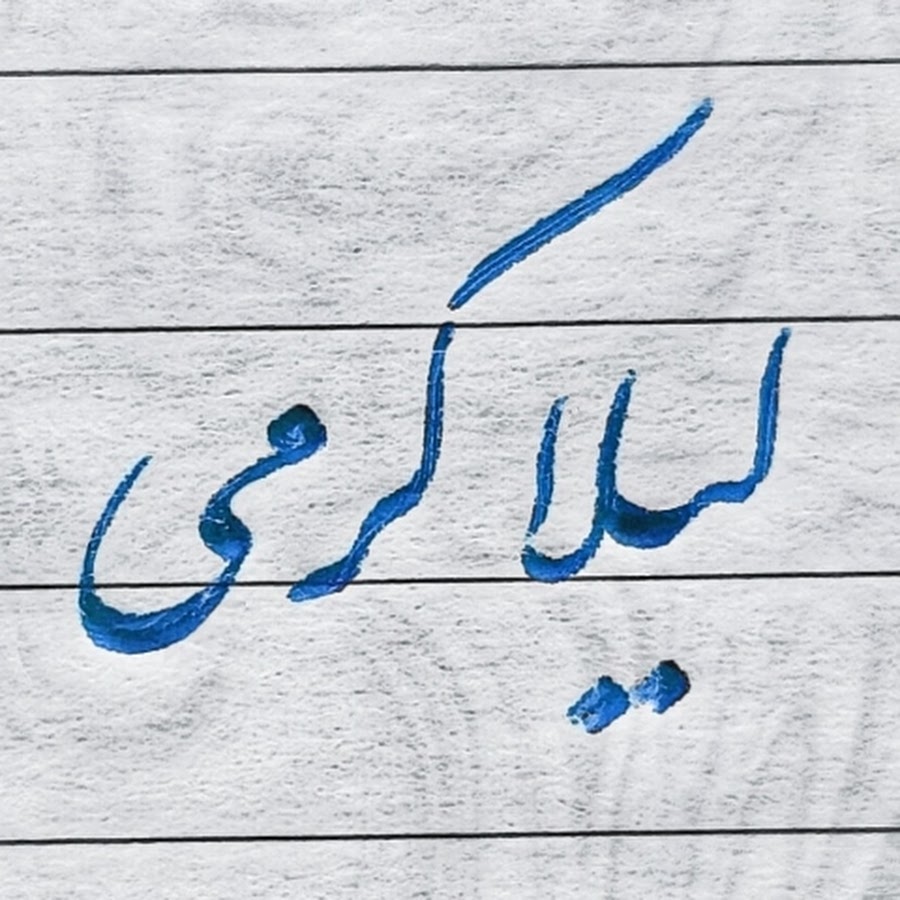 لیلا کرمی